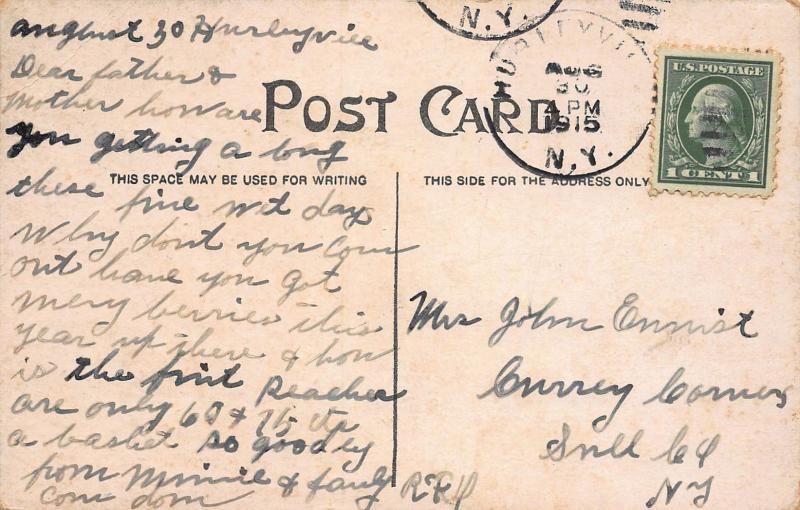 N.Y.
HURLEYVI
AUG
30
4 PM
1915
N.Y.
U.S. POSTAGE
1 CENT 1
POST CARD
THIS SPACE MAY BE USED FOR WRITING
THIS SIDE FOR THE ADDRESS ONLY
august 30 Hurleyville
Dear father &
mother how are
you getting a long
these fine wet days
Why dont you com
out have you got
meny berries this
year up there & how
is the fruit Peaches
are only 60 & 75 cts
a basket so goodby
from Minnie & famly
com dom
Mrs John Ennist
Currey Corners
Sull Co
NY